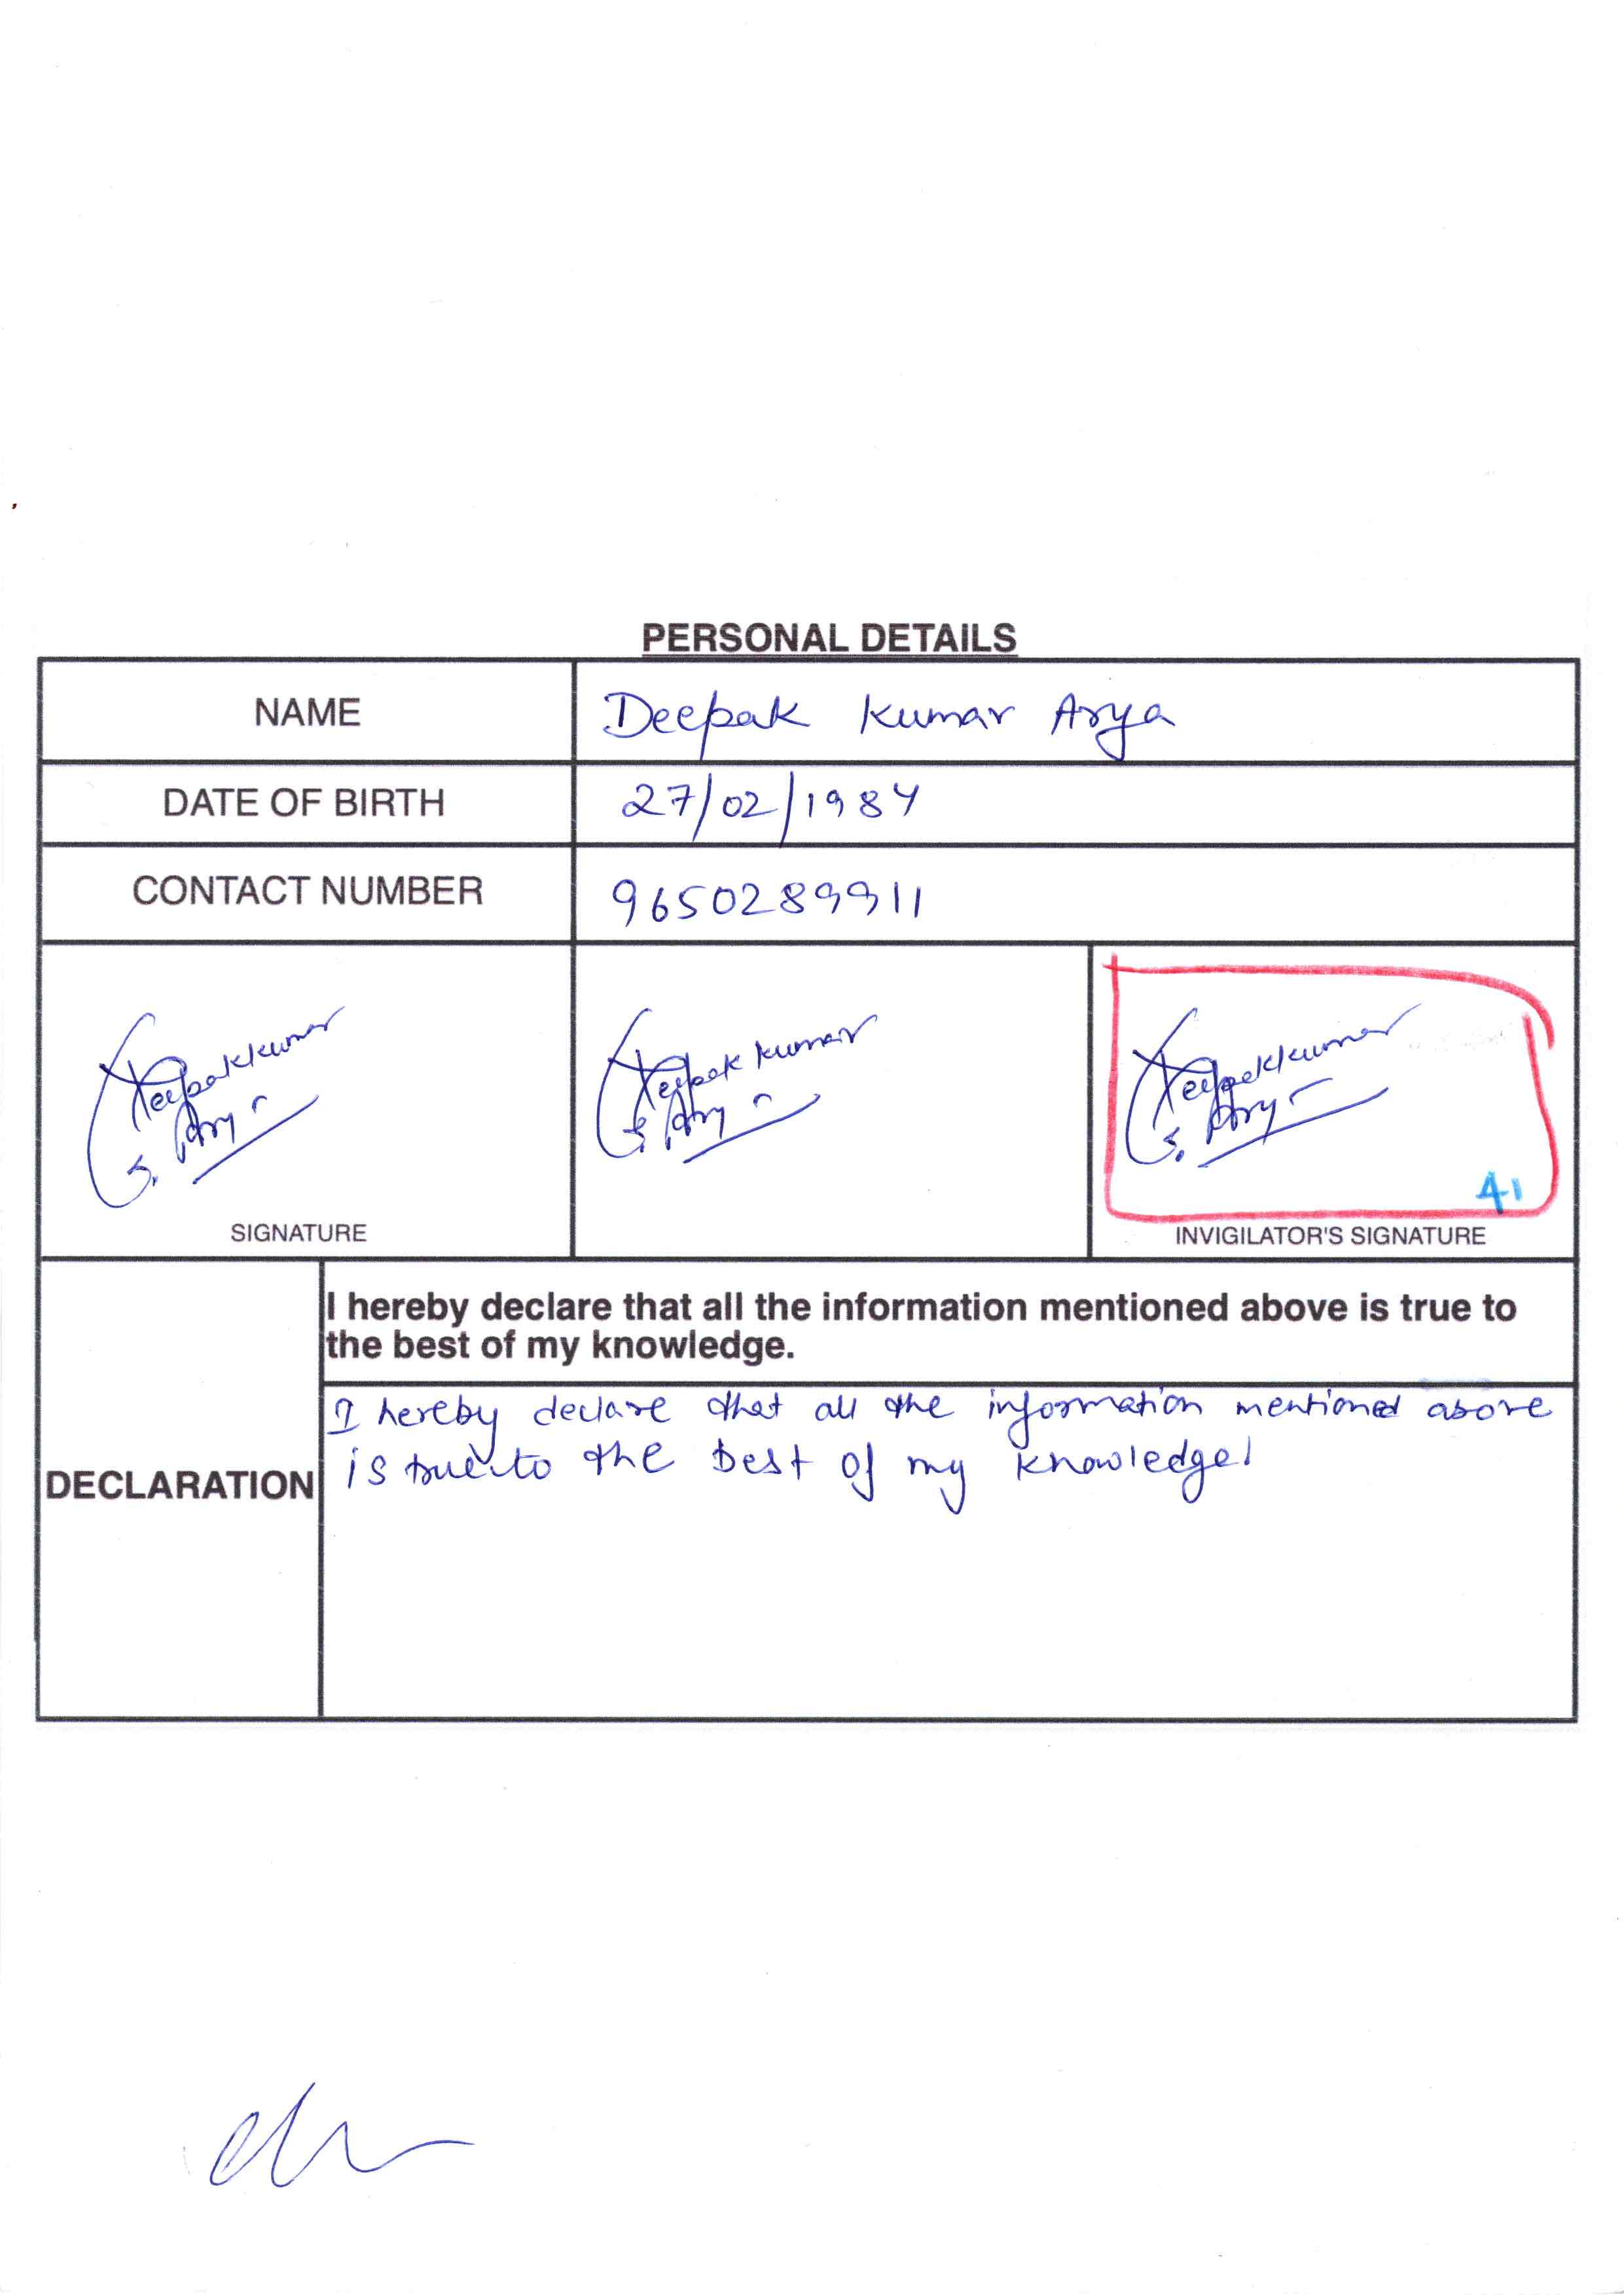 PERSONAL DETAILS
NAME Deepak Kumar Arya
DATE OF BIRTH 27/02/1984
CONTACT NUMBER 9650289911
Deepak Kumar Deepak Kumar Deepak Kumar
S. Arya S. Arya S. Arya
41
SIGNATURE INVIGILATOR'S SIGNATURE
I hereby declare that all the information mentioned above is true to
the best of my knowledge.
I hereby declare that all the information mentioned above
is true to the best of my knowledge
DECLARATION